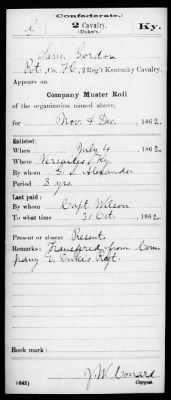 Confederate.
G
2 Cavalry
(Duke's)
Ky.
Sam. Gordon
Pvt, Co. H, 2 Reg't Kentucky Cavalry.
Appears on
Company Muster Roll
of the organization named above,
for Nov. & Dec., 1862.
Enlisted:
When July 4, 1862.
Where Versailles, Ky
By whom Alexander
Period 3 yrs.
Last paid:
By whom Capt. Wilson
To what time 31 Oct, 1862.
Present or absent Present
Remarks: Transfered from Com
pany E Duke's Regt.
Book mark:
(642)
Copyist.